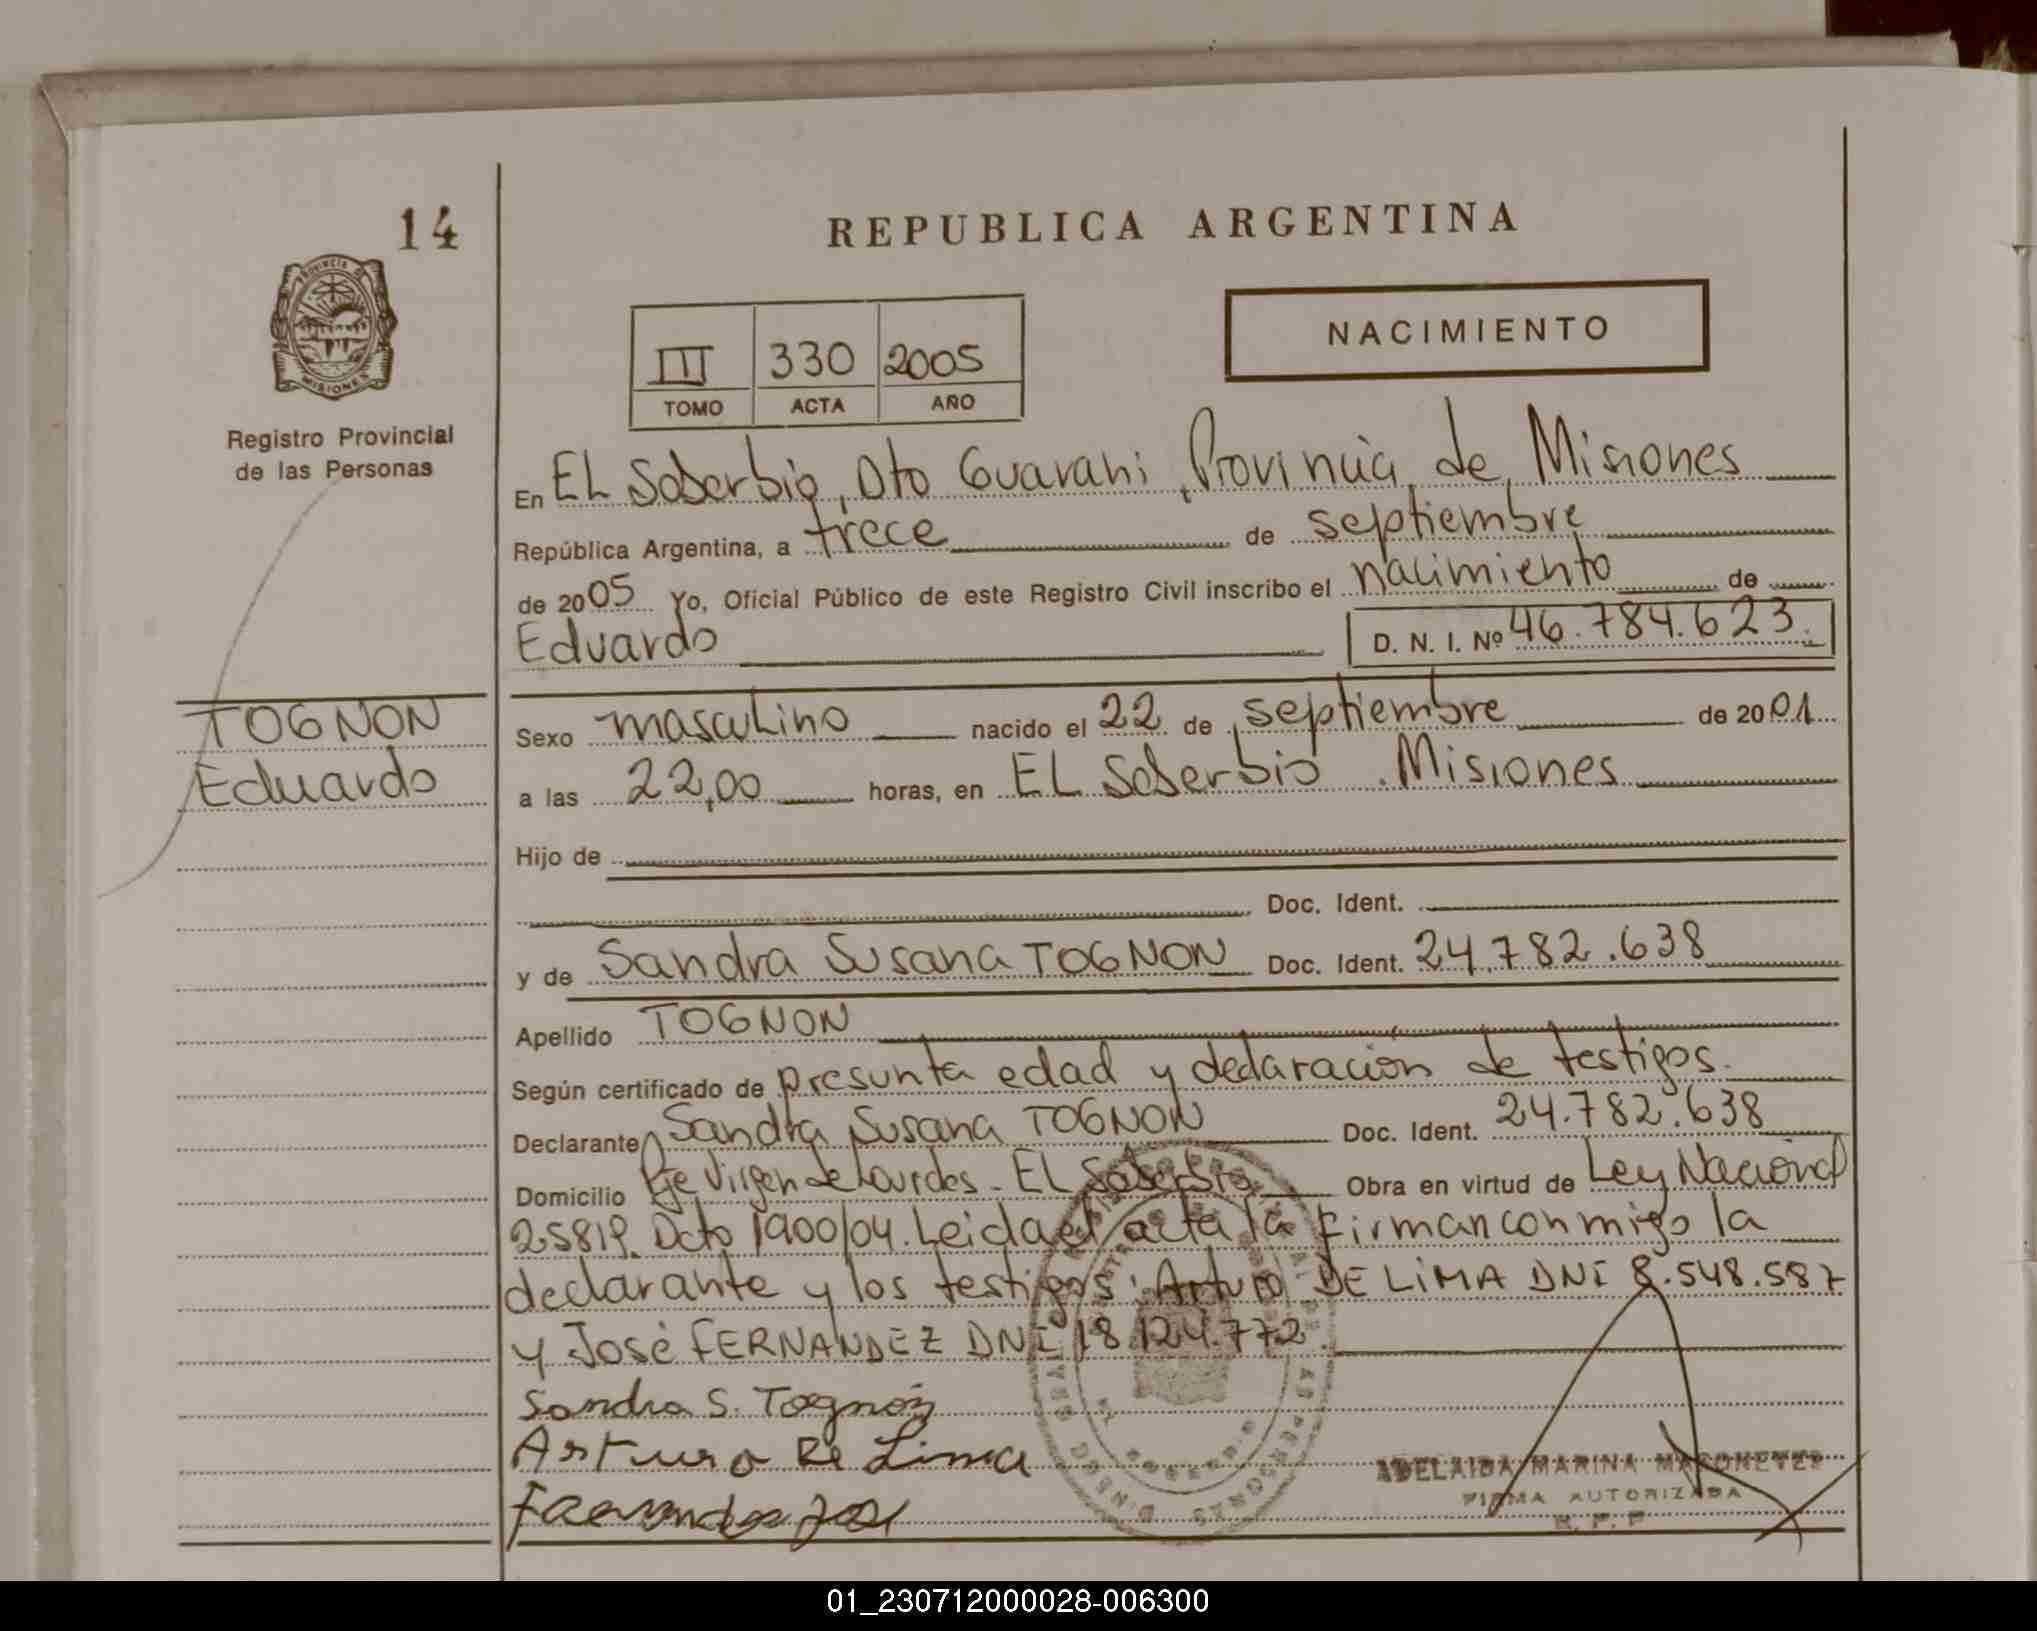 14
REPUBLICA ARGENTINA
PROVINCIA DE
MISIONES
Registro Provincial
de las Personas
III 330 2005
TOMO ACTA AÑO
NACIMIENTO
En EL Soberbio, Dto Guarani, Provincia de Misiones
República Argentina, a trece de septiembre
de 2005 Yo, Oficial Público de este Registro Civil inscribo el nacimiento de
Eduardo D. N. I. Nº 46.784.623.
TOGNON
Eduardo
Sexo masculino nacido el 22 de septiembre de 2001
a las 22,00 horas, en EL Soberbio. Misiones
Hijo de
Doc. Ident.
y de Sandra Susana TOGNON Doc. Ident. 24.782.638
Apellido TOGNON
Según certificado de presunta edad y declaración de testigos.
Declarante Sandra Susana TOGNON Doc. Ident. 24.782.638
Domicilio Pje Virgen de Lourdes - EL Soberbio Obra en virtud de Ley Nacional
25819. Dcto 1900/04. Leida el acta la firman conmigo la
declarante y los testigos: Arturo DE LiMA DNI 8.548.587
y José FERNANDEZ DNI 18.124.772.
Sandra S. Tognón
Arturo De Lima
ADELAIDA MARINA
FIRMA AUTORIZADA
R. P. P
01_230712000028-006300